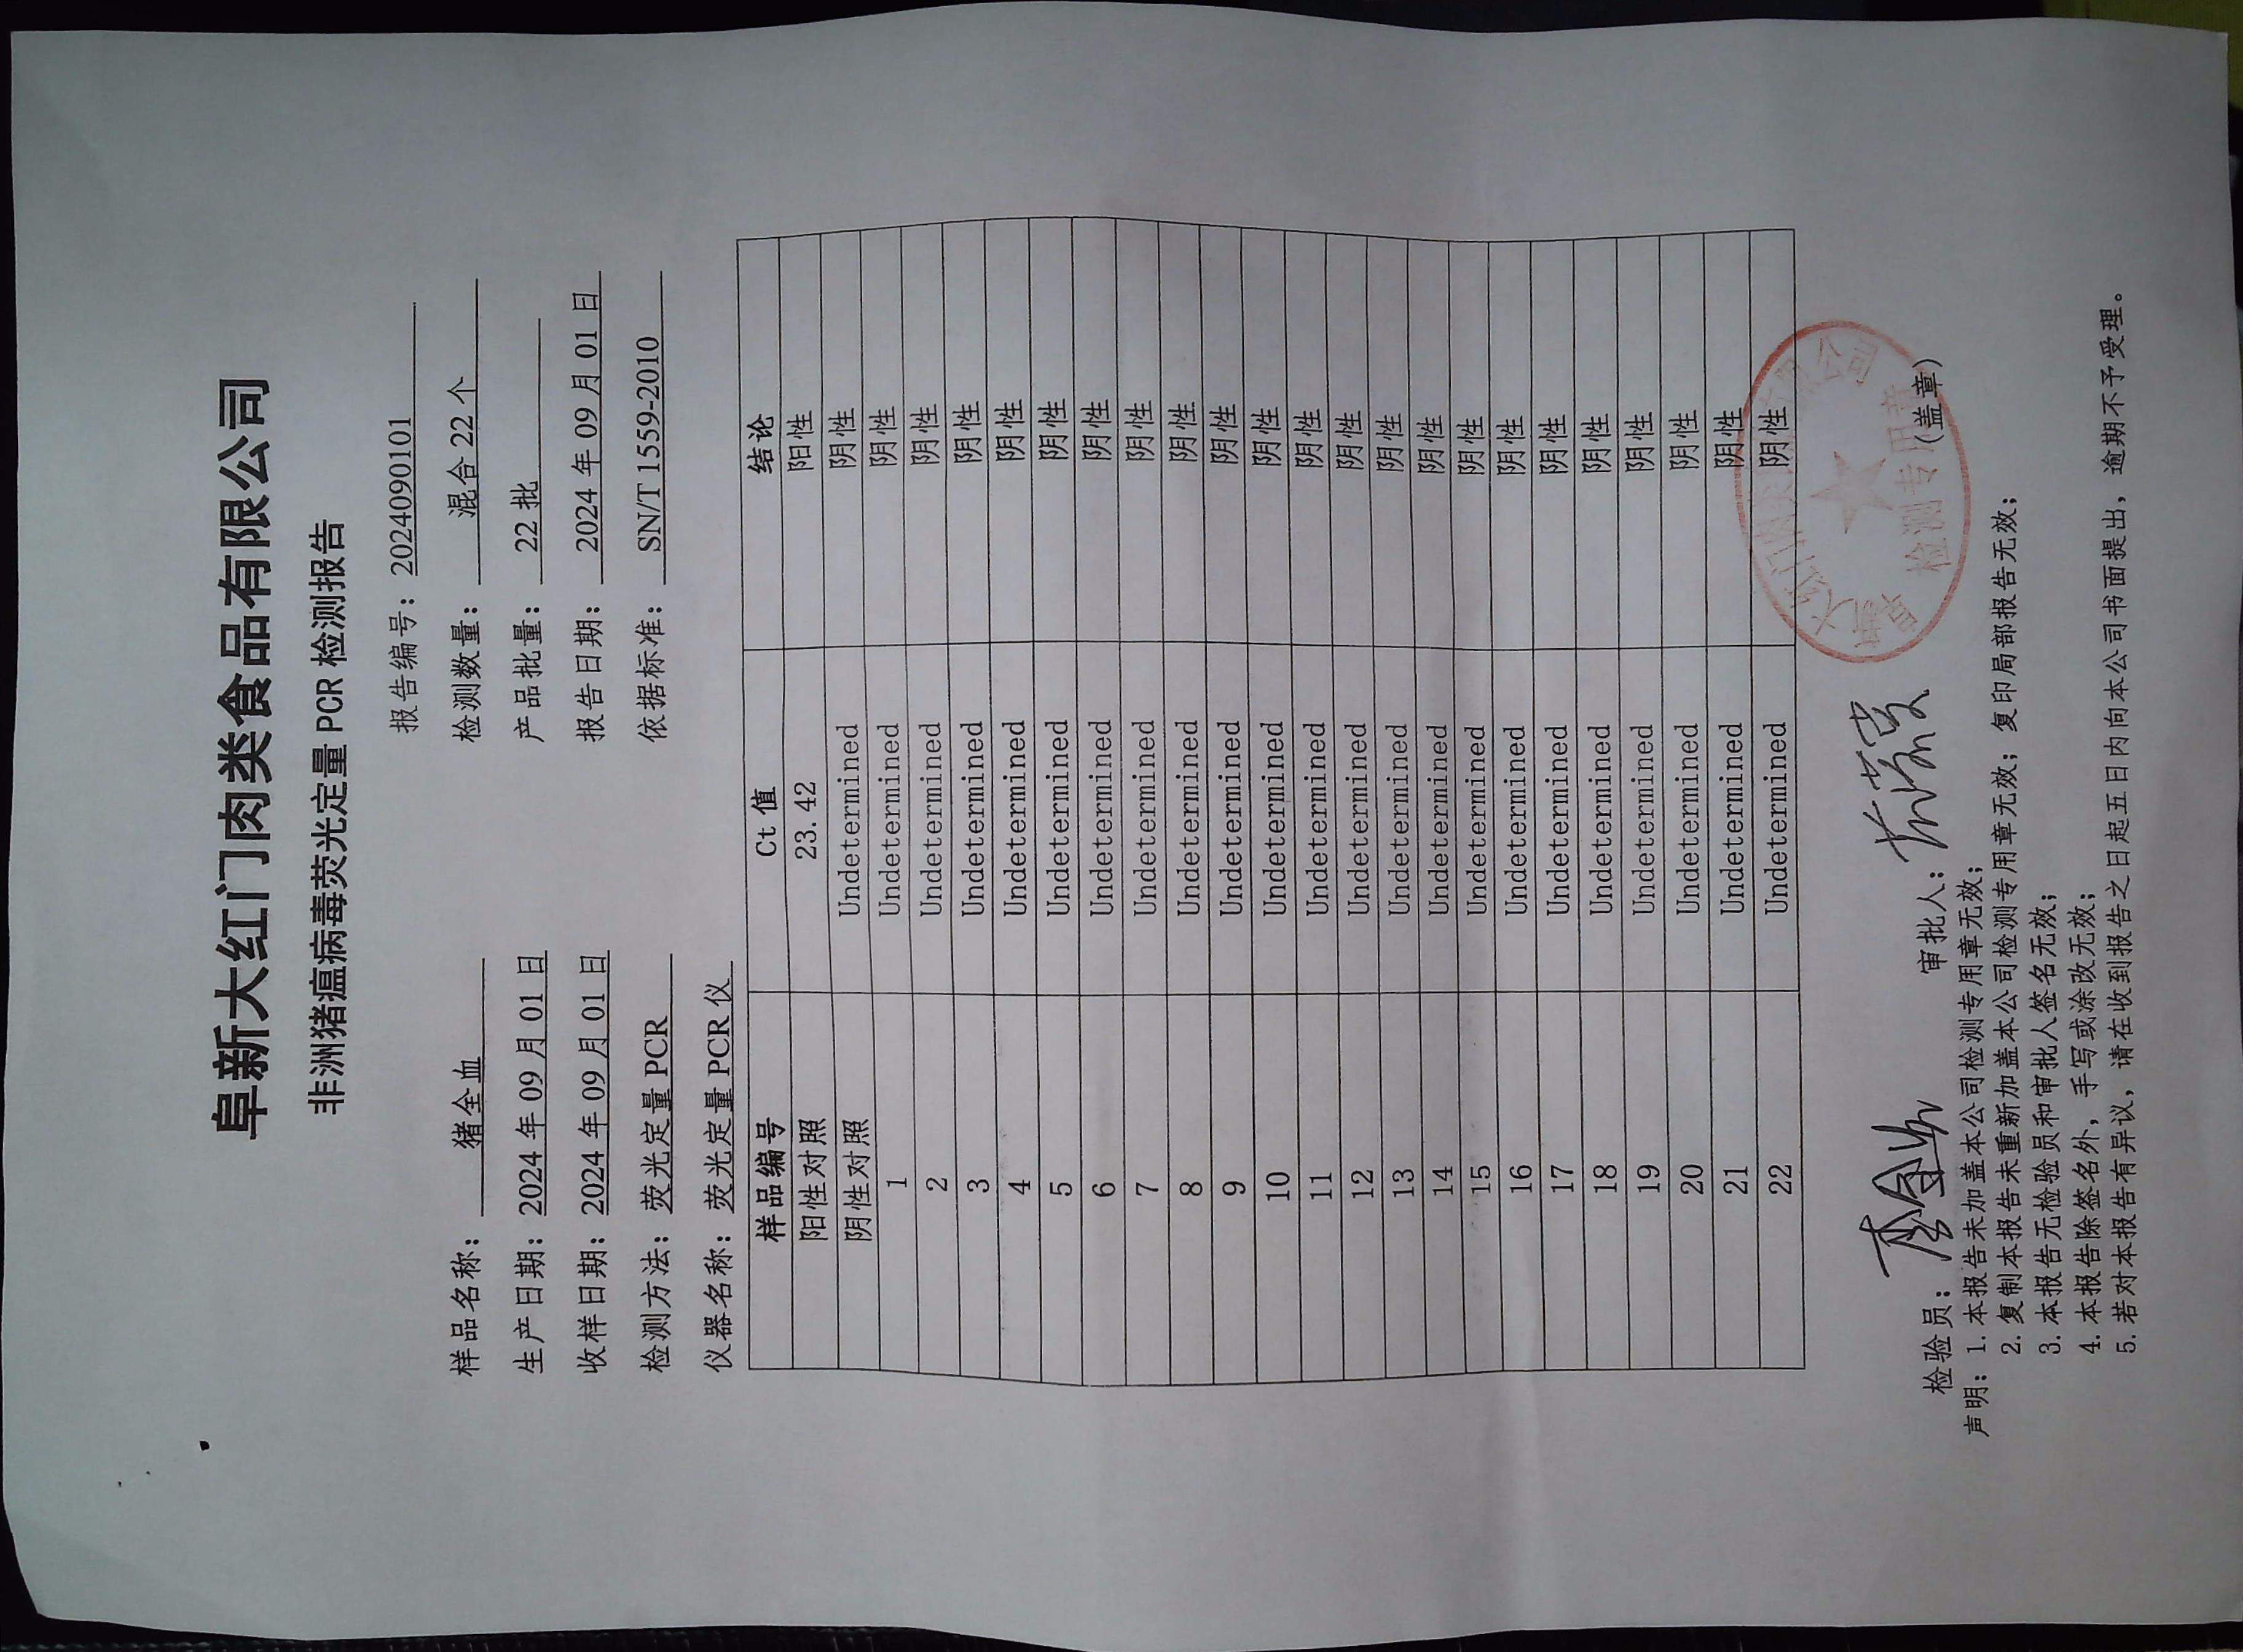 阜新大红门肉类食品有限公司
非洲猪瘟病毒荧光定量 PCR 检测报告
报告编号：2024090101
样品名称：猪全血 检测数量：混合 22 个
生产日期：2024 年 09 月 01 日 产品批量：22 批
收样日期：2024 年 09 月 01 日 报告日期：2024 年 09 月 01 日
检测方法：荧光定量 PCR 依据标准：SN/T 1559-2010
仪器名称：荧光定量 PCR 仪
样品编号 Ct 值 结论
阳性对照 23.42 阳性
阴性对照 Undetermined 阴性
1 Undetermined 阴性
2 Undetermined 阴性
3 Undetermined 阴性
4 Undetermined 阴性
5 Undetermined 阴性
6 Undetermined 阴性
7 Undetermined 阴性
8 Undetermined 阴性
9 Undetermined 阴性
10 Undetermined 阴性
11 Undetermined 阴性
12 Undetermined 阴性
13 Undetermined 阴性
14 Undetermined 阴性
15 Undetermined 阴性
16 Undetermined 阴性
17 Undetermined 阴性
18 Undetermined 阴性
19 Undetermined 阴性
20 Undetermined 阴性
21 Undetermined 阴性
22 Undetermined 阴性
检验员： 审批人： （盖章）
检测专用章
声明：1. 本报告未加盖本公司检测专用章无效；
2. 复制本报告未重新加盖本公司检测专用章无效；复印局部报告无效；
3. 本报告无检验员和审批人签名无效；
4. 本报告除签名外，手写或涂改无效；
5. 若对本报告有异议，请在收到报告之日起五日内向本公司书面提出，逾期不予受理。